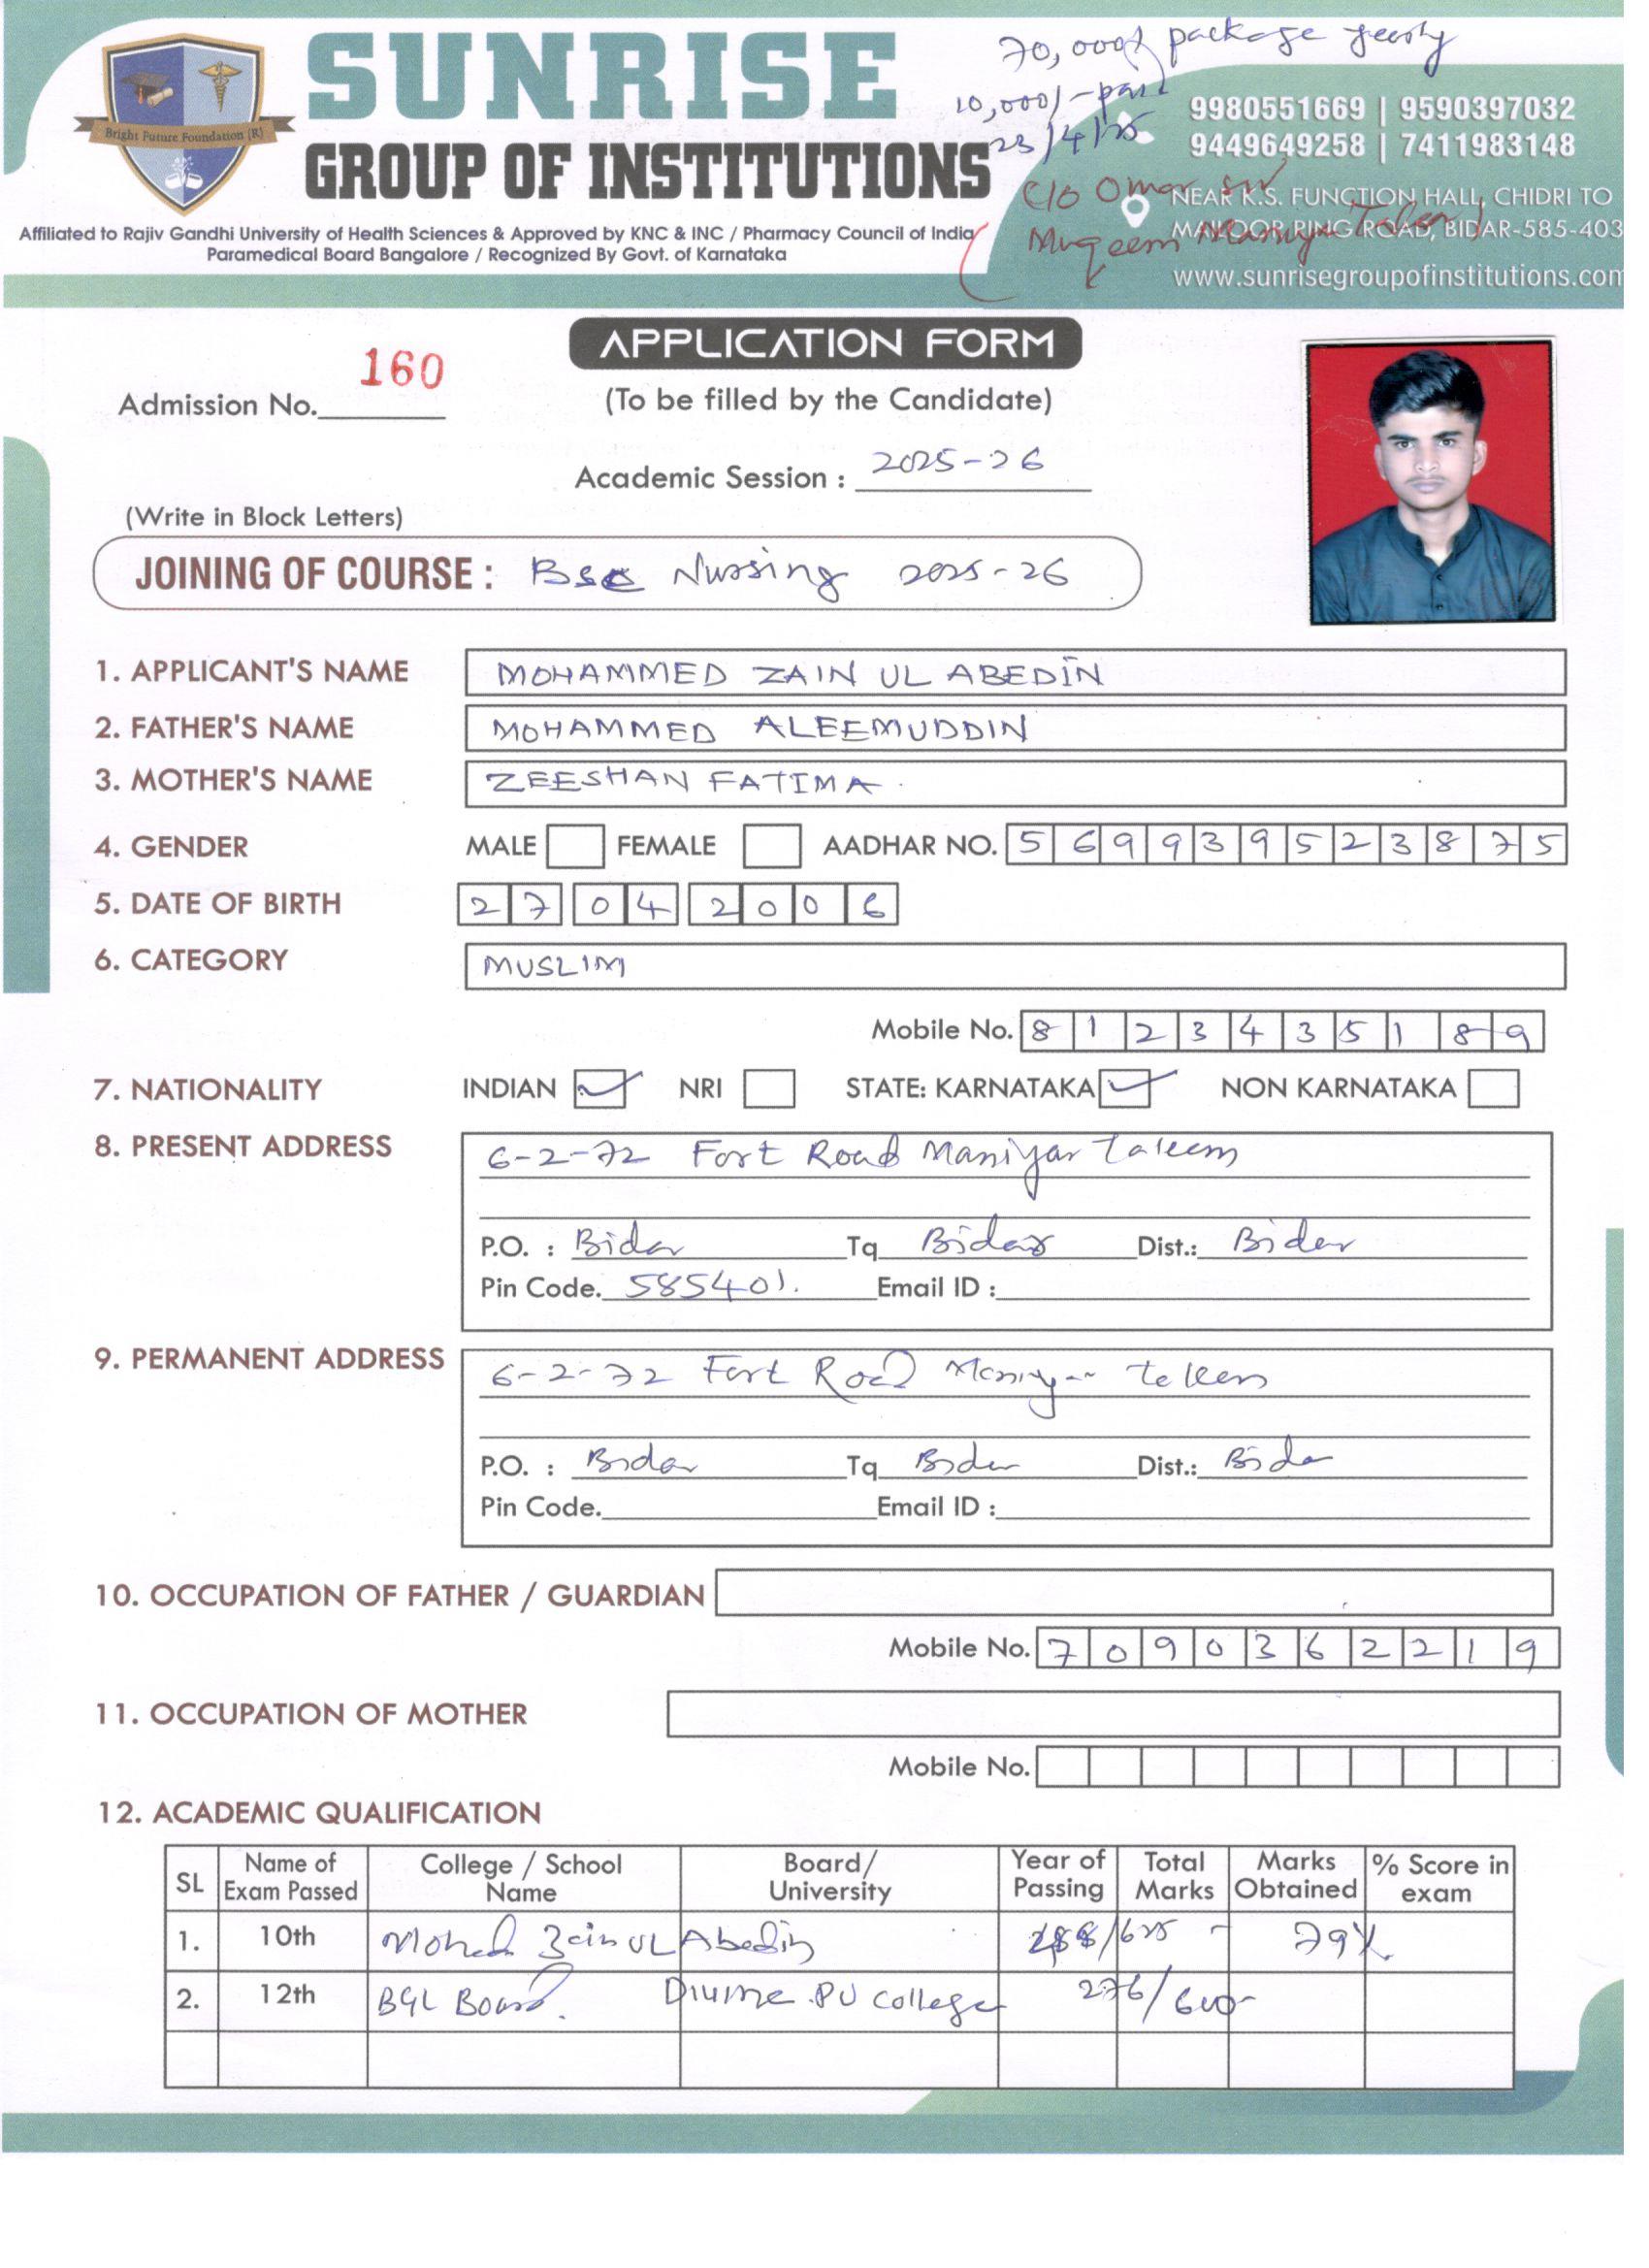 SUNRISE
GROUP OF INSTITUTIONS
Bright Future Foundation (R)
Affiliated to Rajiv Gandhi University of Health Sciences & Approved by KNC & INC / Pharmacy Council of India
Paramedical Board Bangalore / Recognized By Govt. of Karnataka
70,000/ package yearly
10,000/- paid
23/4/25
9980551669 | 9590397032
9449649258 | 7411983148
C/o Omar sir
Muqeem Maniyar Taleem)
NEAR K.S. FUNCTION HALL, CHIDRI TO
RING ROAD, BIDAR-585-403
www.sunrisegroupofinstitutions.com
APPLICATION FORM
(To be filled by the Candidate)
Admission No. 160
Academic Session : 2025-26
(Write in Block Letters)
JOINING OF COURSE : Bsc Nursing 2025-26
1. APPLICANT'S NAME MOHAMMED ZAIN UL ABEDIN
2. FATHER'S NAME MOHAMMED ALEEMUDDIN
3. MOTHER'S NAME ZEESHAN FATIMA
4. GENDER MALE FEMALE AADHAR NO. 569939523875
5. DATE OF BIRTH 27 04 2006
6. CATEGORY MUSLIM
Mobile No. 8123435189
7. NATIONALITY INDIAN NRI STATE: KARNATAKA NON KARNATAKA
8. PRESENT ADDRESS 6-2-72 Fort Road Maniyar Taleem
P.O. : Bidar Tq Bidar Dist.: Bidar
Pin Code. 585401. Email ID :
9. PERMANENT ADDRESS 6-2-72 Fort Road Maniyar Taleem
P.O. : Bidar Tq Bidar Dist.: Bidar
Pin Code. Email ID :
10. OCCUPATION OF FATHER / GUARDIAN
Mobile No. 7090362219
11. OCCUPATION OF MOTHER
Mobile No.
12. ACADEMIC QUALIFICATION
SL Name of Exam Passed College / School Name Board/ University Year of Passing Total Marks Marks Obtained % Score in exam
1. 10th Mohd Zain UL Abedin 488/625 - 79%
2. 12th Board. Divine PU College 276/600-